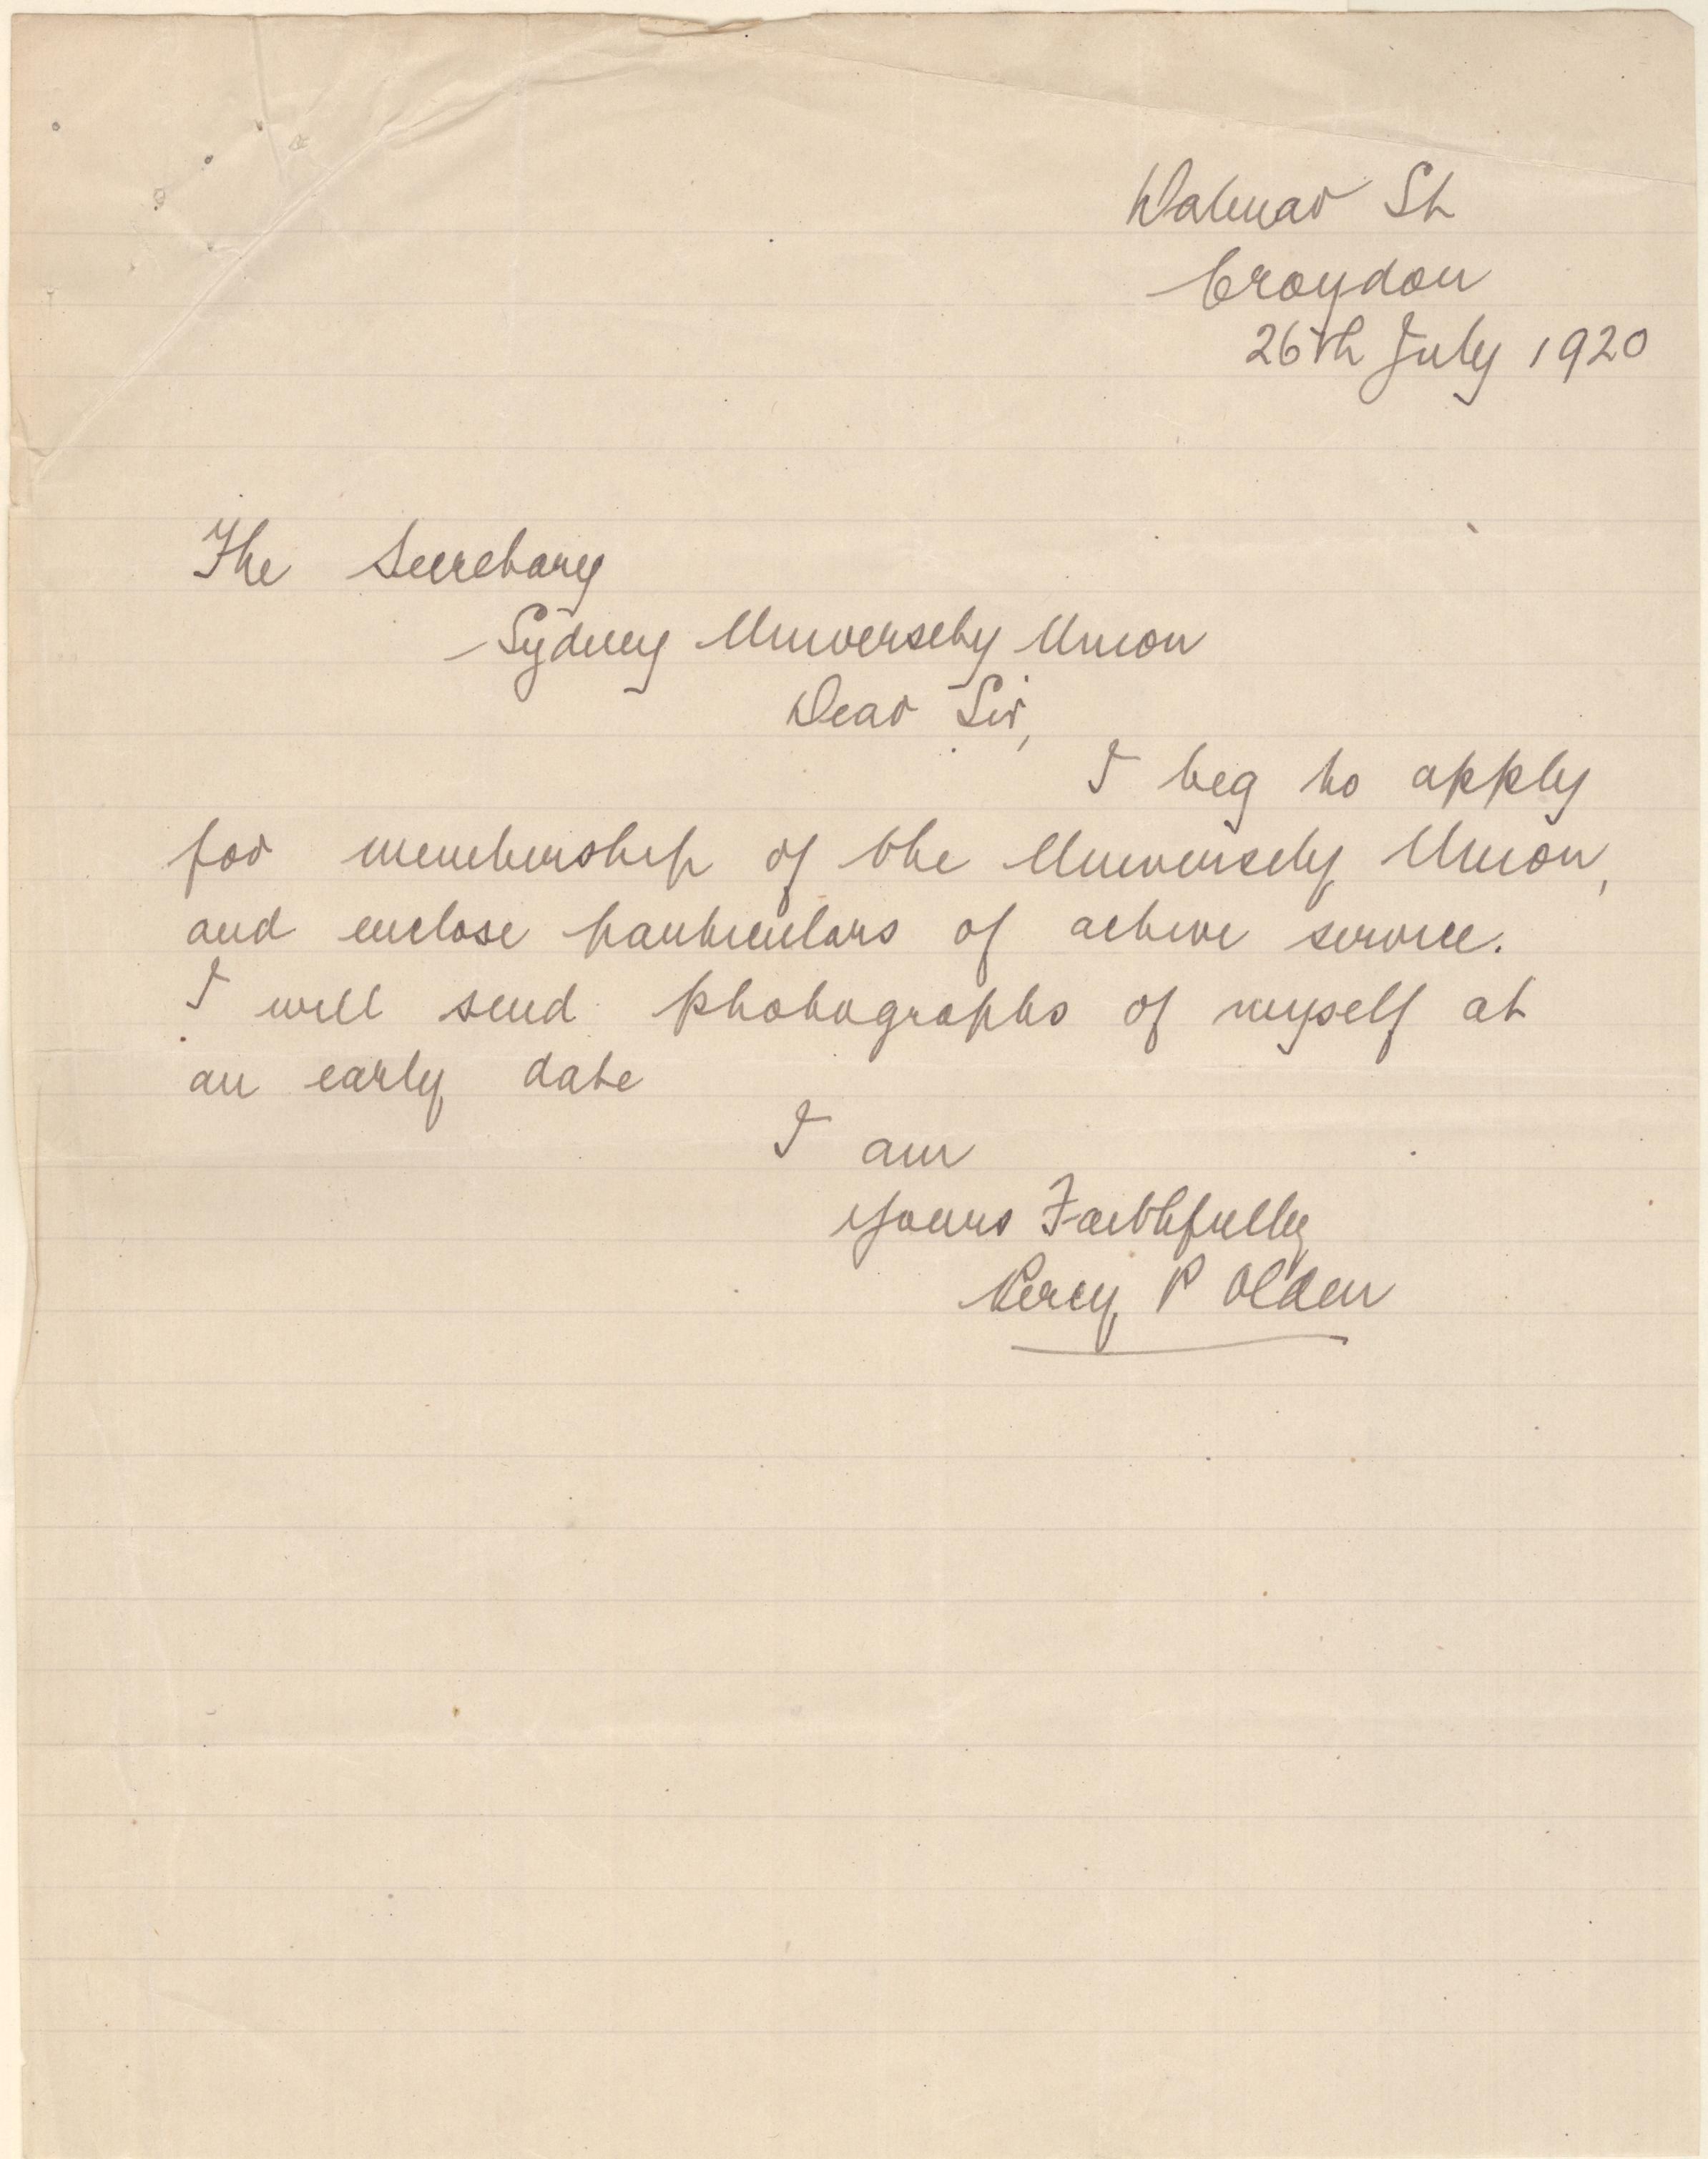 Dalmar St
Croydon
26th July 1920
The Secretary
Sydney University Union
Dear Sir,
I beg to apply
for membership of the University Union,
and enclose particulars of active service.
I will send photographs of myself at
an early date
I am
Yours Faithfully
Percy P Olden